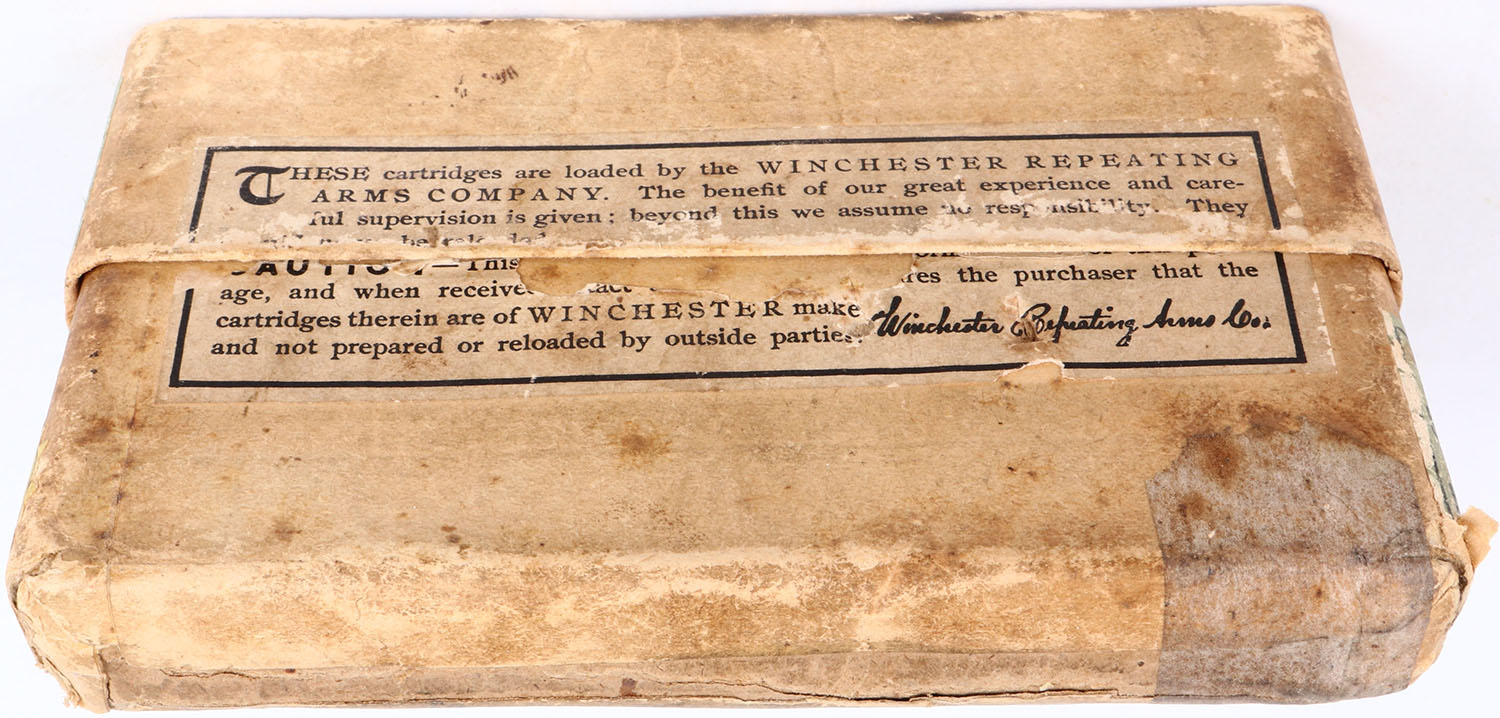 THESE cartridges are loaded by the WINCHESTER REPEATING
ARMS COMPANY. The benefit of our great experience and care-
ful supervision is given; beyond this we assume no responsibility. They
be reloaded
CAUTION—This
age, and when received the purchaser that the
cartridges therein are of WINCHESTER make
and not prepared or reloaded by outside parties.
Winchester Repeating Arms Co.